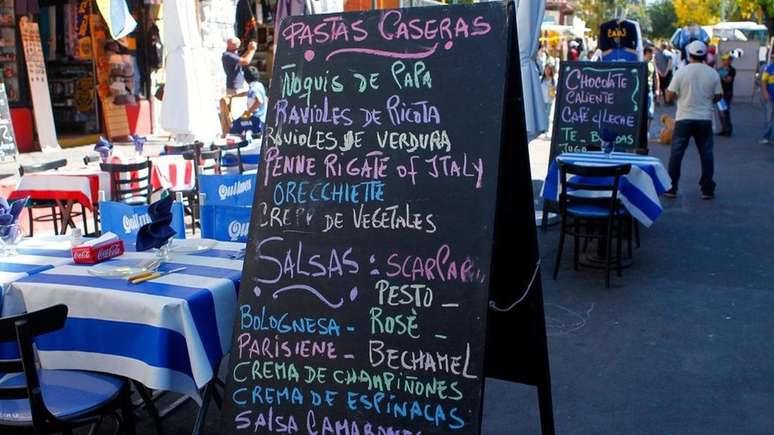 PASTAS CASERAS
ÑOQUIS DE PAPA
RAVIOLES DE RICOTA
RAVIOLES DE VERDURA
PENNE RIGATE OF ITALY
ORECCHIETTE
CREPP DE VEGETALES
SALSAS: SCARPARI
PESTO -
BOLOGNESA - ROSÈ -
PARISIENE - BECHAMEL
CREMA DE CHAMPIÑONES
CREMA DE ESPINACAS
SALSA CAMARONES
CHOCOLATE
CALIENTE
CAFÉ Y LECHE
TE
Quilmes
Coca-Cola